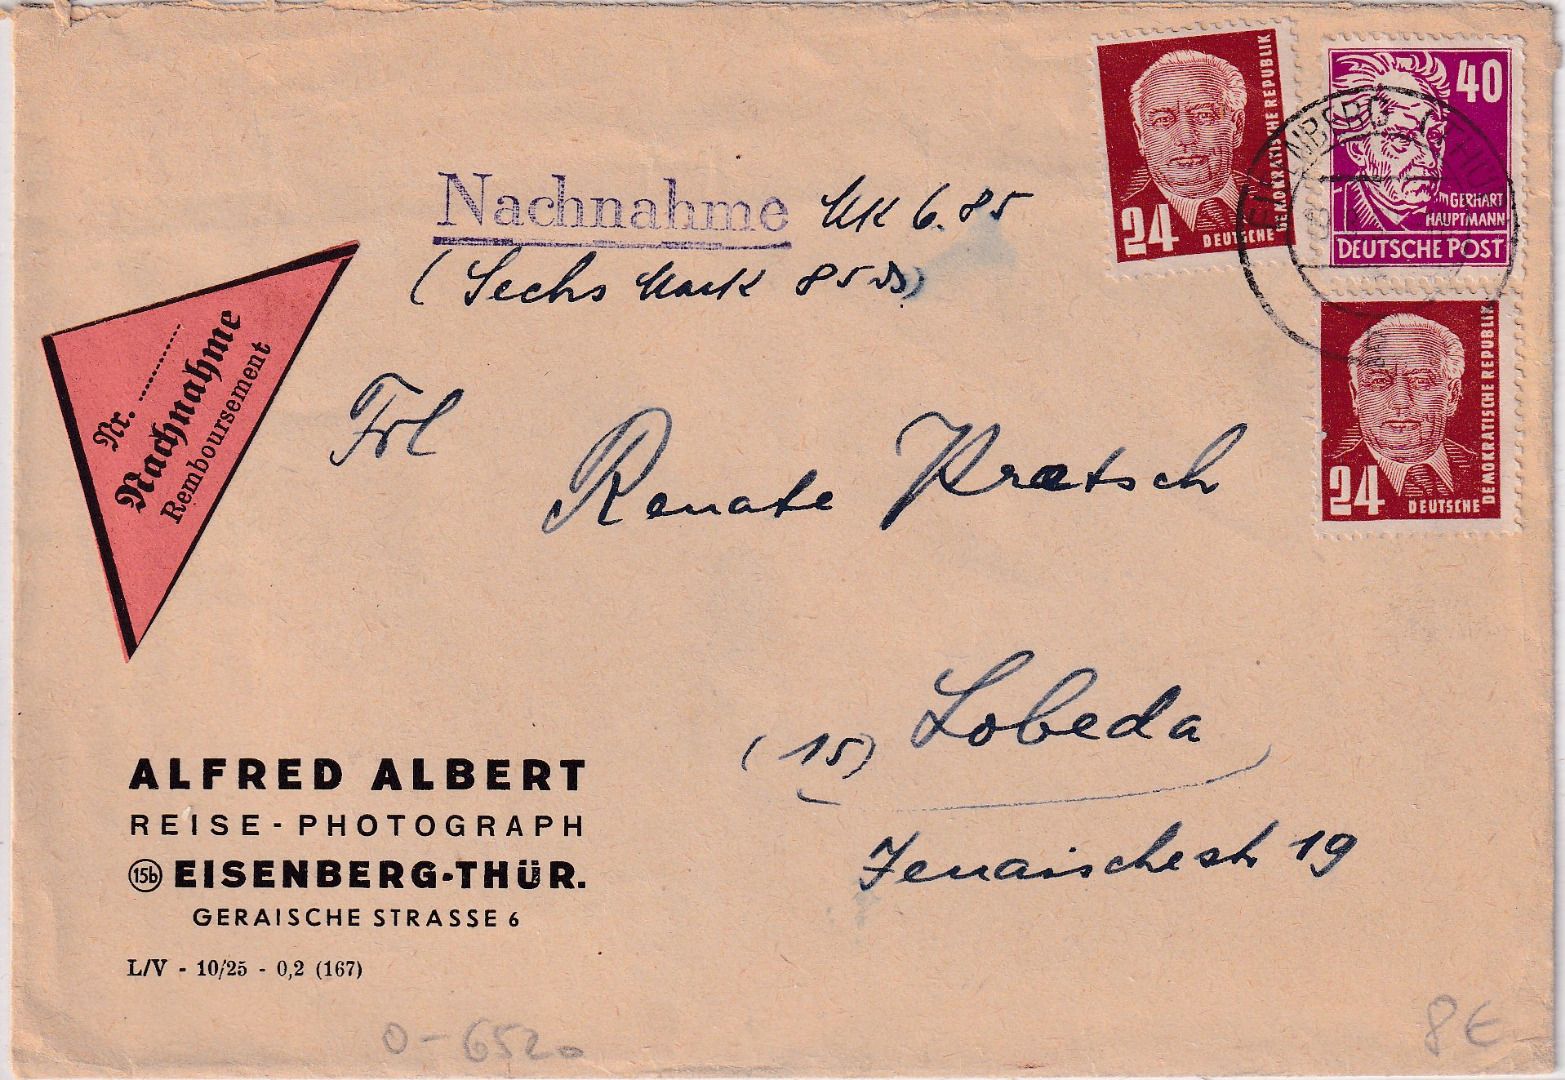 Nachnahme MK 6.85
(Sechs Mark 85 )
24
DEUTSCHE
DEMOKRATISCHE REPUBLIK
40
GERHART
HAUPTMANN
DEUTSCHE POST
24
DEUTSCHE
DEMOKRATISCHE REPUBLIK
EISENBERG (THÜR
Nr. ..........
Nachnahme
Remboursement
Frl
Renate Pratsch
(15) Lobeda
Jenaischestr 19
ALFRED ALBERT
REISE-PHOTOGRAPH
15b EISENBERG-THÜR.
GERAISCHE STRASSE 6
L/V - 10/25 - 0,2 (167)
O-6520
8€